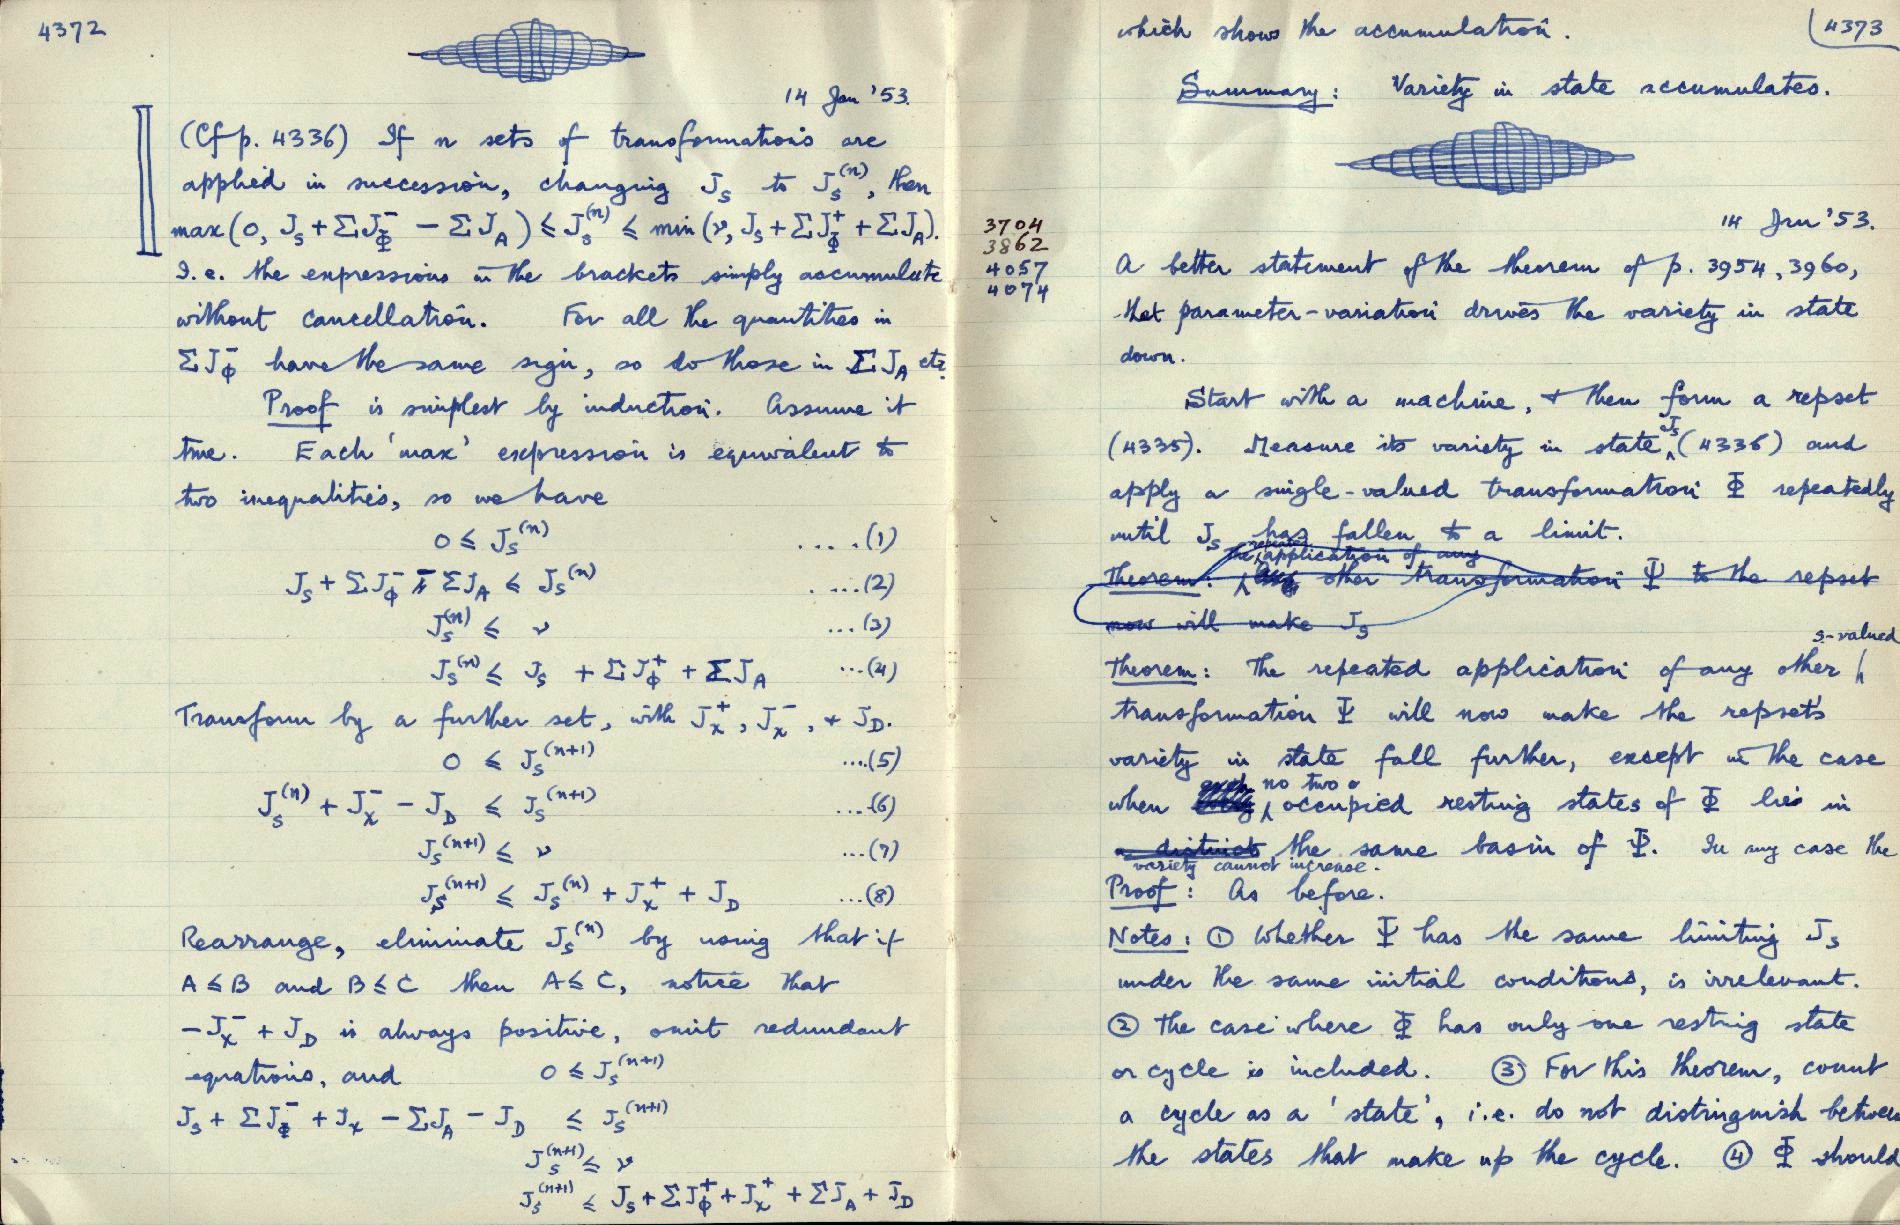 4372
14 Jan '53.
(Cf p. 4336) If n sets of transformations are
applied in succession, changing J_S to J_S^(n), then
max(0, J_S + ΣJ_Φ^- − ΣJ_A) ≤ J_S^(n) ≤ min(ν, J_S + ΣJ_Φ^+ + ΣJ_A).
I.e. the expressions in the brackets simply accumulate
without cancellation. For all the quantities in
ΣJ_Φ^- have the same sign, so do those in ΣJ_A etc.
Proof is simplest by induction. Assume it
true. Each 'max' expression is equivalent to
two inequalities, so we have
0 ≤ J_S^(n) ....(1)
J_S + ΣJ_Φ^- − ΣJ_A ≤ J_S^(n) ....(2)
J_S^(n) ≤ ν ...(3)
J_S^(n) ≤ J_S + ΣJ_Φ^+ + ΣJ_A ...(4)
Transform by a further set, with J_X^+, J_X^-, + J_D.
0 ≤ J_S^(n+1) ....(5)
J_S^(n) + J_X^- − J_D ≤ J_S^(n+1) ...(6)
J_S^(n+1) ≤ ν ...(7)
J_S^(n+1) ≤ J_S^(n) + J_X^+ + J_D ...(8)
Rearrange, eliminate J_S^(n) by using that if
A ≤ B and B ≤ C then A ≤ C, notice that
−J_X^- + J_D is always positive, omit redundant
equations, and 0 ≤ J_S^(n+1)
J_S + ΣJ_Φ^- + J_X − ΣJ_A − J_D ≤ J_S^(n+1)
J_S^(n+1) ≤ ν
J_S^(n+1) ≤ J_S + ΣJ_Φ^+ + J_X^+ + ΣJ_A + J_D
4373
which shows the accumulation.
Summary: Variety in state accumulates.
14 Jan '53.
3704
3862
4057
4074
A better statement of the theorem of p. 3954, 3960,
that parameter-variation drives the variety in state
down.
Start with a machine, + then form a repset
(4335). Measure its variety in state J_S (4336) and
apply a single-valued transformation Φ repeatedly
until J_S has fallen to a limit.
the repeated application of any
Theorem: other transformation Ψ to the repset
now will make J_S
s-valued
Theorem: The repeated application of any other
transformation Ψ will now make the repset's
variety in state fall further, except in the case
no two
when occupied resting states of Φ lie in
a district the same basin of Ψ. In any case the
variety cannot increase.
Proof: As before.
Notes: ① Whether Ψ has the same limiting J_S
under the same initial conditions, is irrelevant.
② The case where Φ has only one resting state
or cycle is included. ③ For this theorem, count
a cycle as a 'state', i.e. do not distinguish between
the states that make up the cycle. ④ Φ should